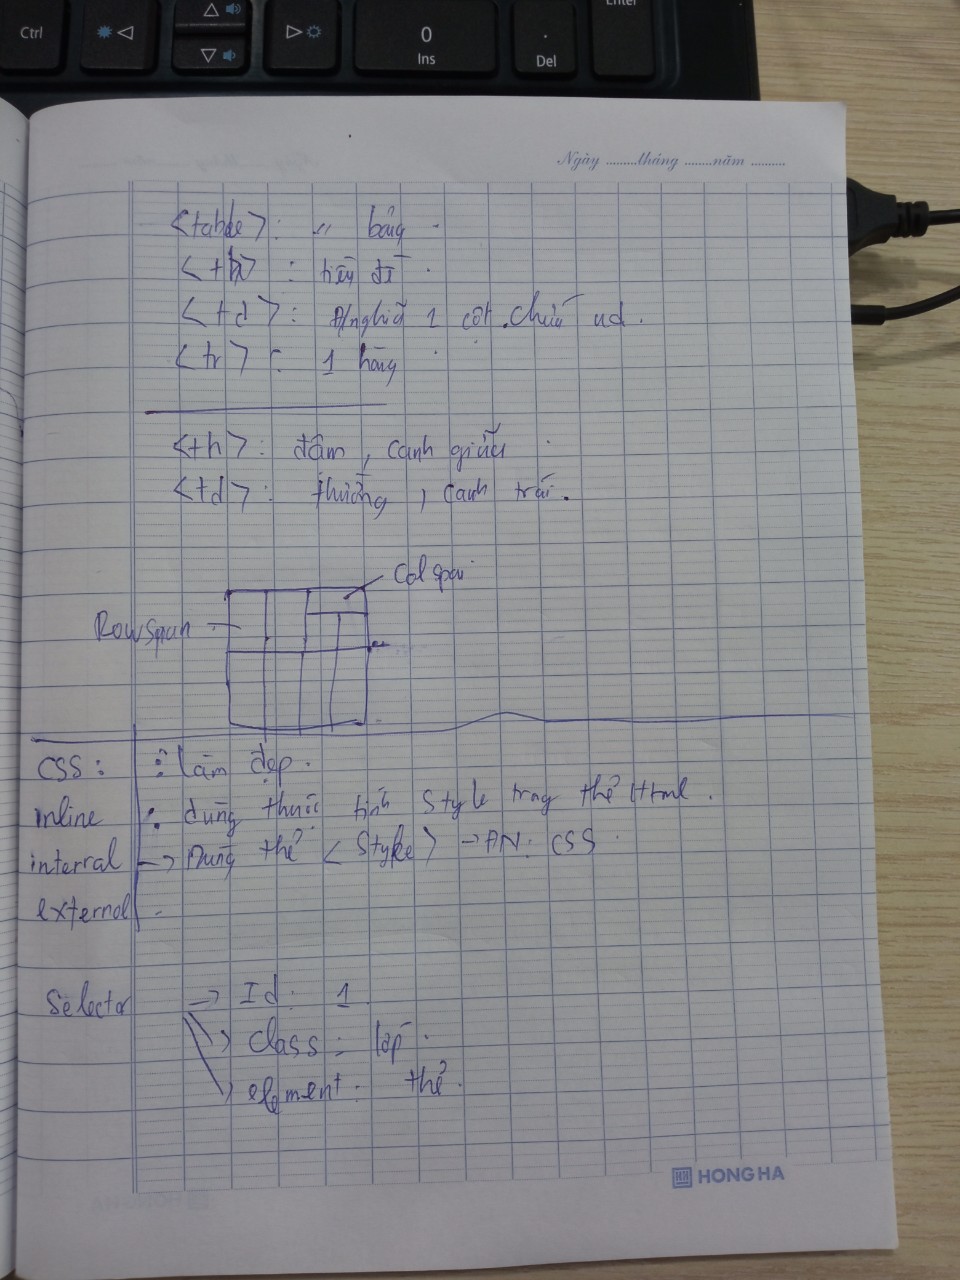 Ctrl
0
Ins
.
Del
Enter
Ngày .........tháng ........năm ..........
<table>: " bảng
<th> : tiêu đề .
<td> : Đ/nghĩa 1 cột . chứa nd .
<tr> : 1 hàng
<th> : đậm , canh giữa
<td> : thường , canh trái .
Col span
Row span
CSS : : làm đẹp .
inline : dùng thuộc tính Style trong thẻ Html .
internal -> Dùng thẻ <Style> -> ĐN : CSS
external .
Selector -> Id : 1
class : lớp .
element : thẻ .
HONG HA